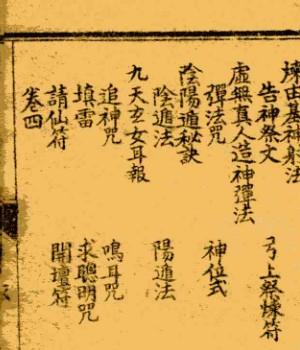 煉由基神射法
告神祭文　弓上祭煉符
虛無真人造神彈法
彈法咒　神位式
陰陽遁秘訣
陰遁法　陽遁法
九天玄女耳報
追神咒　鳴耳咒
填雷　求聰明咒
請仙符　開壇符
卷四